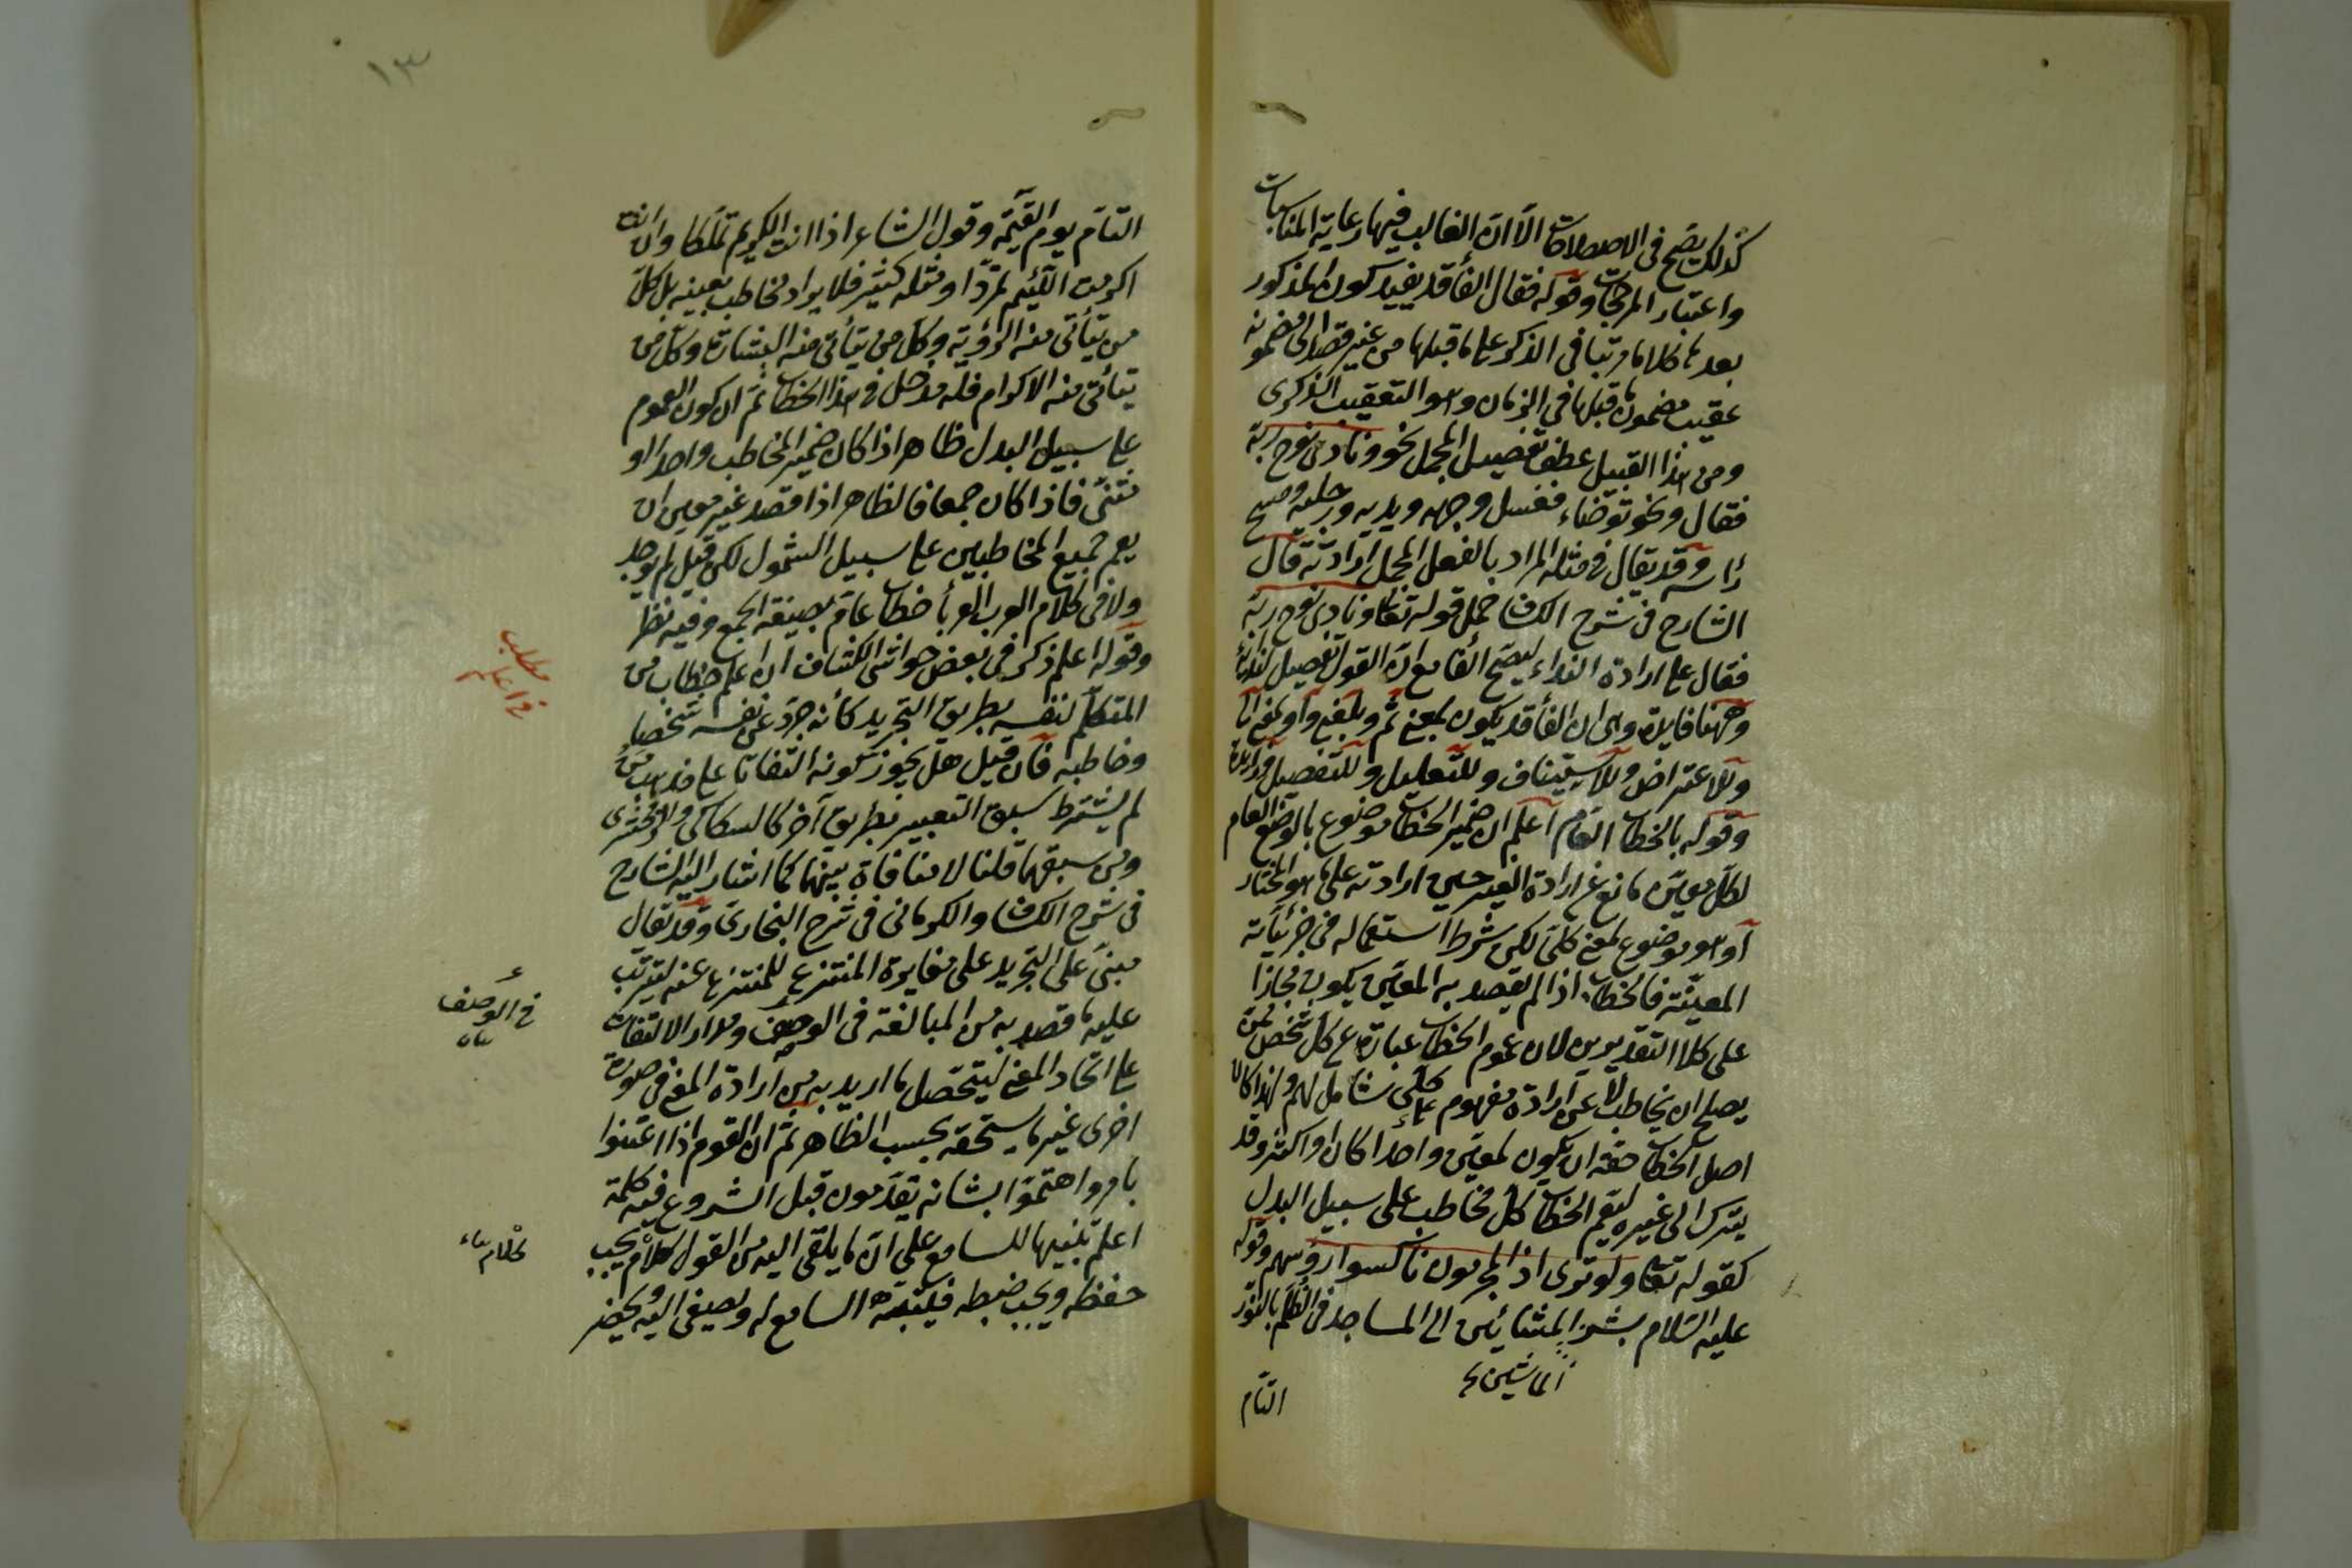 كذلك يصح في الاصطلاحات الا ان الغالب فيها رعاية المناسبات
واعتبار المرجحات وقوله فقال الفأ قد يفيد كون المذكور
بعدها كلاما مرتبا في الذكر على ما قبلها من غير قصد الى مضمونه
عقيب مضمون ما قبلها في الزمان وهو التعقيب الذكرى
ومن هذا القبيل عطف تفصيل المجمل نحو ونادى نوح ربه
فقال ونحو توضاء فغسل وجهه ويديه ورجليه ومسح
رأسه وقد يقال في مثله المراد بالفعل المجمل ارادته قال
الشارح في شرح الكشاف حمل قوله تعالى ونادى نوح ربه
فقال على ارادة النداء ليصح الفا مع ان القول تفصيل للندأ
وههنا فايدة وهي ان الفأ قد يكون لمعنى ثم وبمعنى واو لمعنى الى
وللاعتراض وللاستيناف وللتعليل وللتفصيل وزايدة
وقوله بالخطاب العام اعلم ان ضمير الخطاب موضوع بالوضع العام
لكل معين مانع عن ارادة الغير حين ارادته على ما هو المختار
او هو موضوع لمعنى كلي لكن شرط استعماله في جزئياته
المعينة فالخطاب اذا لم يقصد به المعين يكون مجازا
على كلا التقديرين لان عموم الخطاب عبارة عن كل شخص ممن
يصلح ان يخاطب لا عن ارادة مفهوم كلي شامل لهم ولهذا كان
اصل الخطاب حقه ان يكون لمعين واحدا كان او اكثر وقد
يترك الى غيره ليعم الخطاب كل مخاطب على سبيل البدل
كقوله تعالى ولو ترى اذ المجرمون ناكسوا رؤسهم وقوله
عليه السلام بشر المشائين الى المساجد في الظلم بالنور
الماشين
التام
١٣
التام يوم القيمة وقول الشاعر اذا انت الكريم تملكا وان انت
اكرمت اللئيم تمردا ومثله كثير فلا يراد مخاطب بعينه بل كل
من يتأتى منه الرؤية وكل من يتأتى منه البشارة وكل من
يتأتى منه الاكرام فله مدخل في هذا الخطاب ثم ان كون العموم
على سبيل البدل ظاهر اذا كان ضمير المخاطب واحدا او
مثنى فاذا كان جمعا فالظاهر اذا قصد غير معين ان
يعم جميع المخاطبين على سبيل الشمول لكن قيل لم يوجد
ولا في كلام العرب العربأ خطاب عام بصيغة الجمع وفيه نظر
وقوله اعلم ذكر في بعض حواشى الكشاف ان اعلم خطاب من
المتكلم لنفسه بطريق التجريد كأنه جرد عن نفسه شخصا
وخاطبه فان قيل هل يجوز كونه التفاتا على مذهب من
لم يشترط سبق التعبير بطريق آخر كالسكاكي والزمخشرى
ومن سبقهما قلنا لا منافاة بينهما كما اشار اليه الشارح
في شرح الكشاف والكرماني في شرح البخارى وقد يقال
مبنى على التجريد على مغايرة المنتزع للمنتزع عنه ليترتب
عليه ما قصد به من المبالغة في الوصف ومدار الالتفات
على اتحاد المعنى ليتحصل ما اريد به من ارادة المعنى في صورة
اخرى غير ما يستحقه بحسب الظاهر ثم ان القوم اذا اعتنوا
بامر واهتموا بشانه يقدمون قبل الشروع فيه كلمة
اعلم تنبيها للسامع على ان ما يلقى اليه من القول كلام يجب
حفظه ويجب ضبطه فليتنبه السامع له ويصغى اليه ويحضر
مطلب
في اعلم
في الوصف
كلام